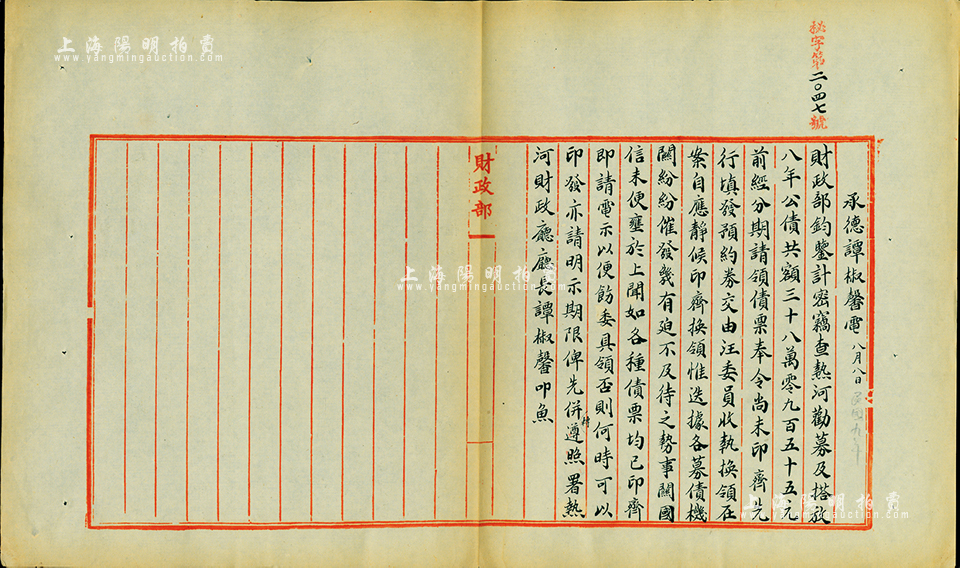 秘字第二〇四七號
承德譚椒馨電 八月八日
財政部鈞鑒計密竊查熱河勸募及搭放
八年公債共額三十八萬零九百五十五元
前經分期請領債票奉令尚未印齊先
行填發預約券交由汪委員收執換領在
案自應靜候印齊換領惟迭據各募債機
關紛紛催發幾有迫不及待之勢事關國
信未便壅於上聞如各種債票均已印齊
即請電示以便飭委具領否則何時可以
印發亦請明示期限俾先併遵照署熱
河財政廳廳長譚椒馨叩魚
財政部
上海陽明拍賣
www.yangmingauction.com
上海陽明拍賣
www.yangmingauction.com
上海陽明拍賣
www.yangmingauction.com